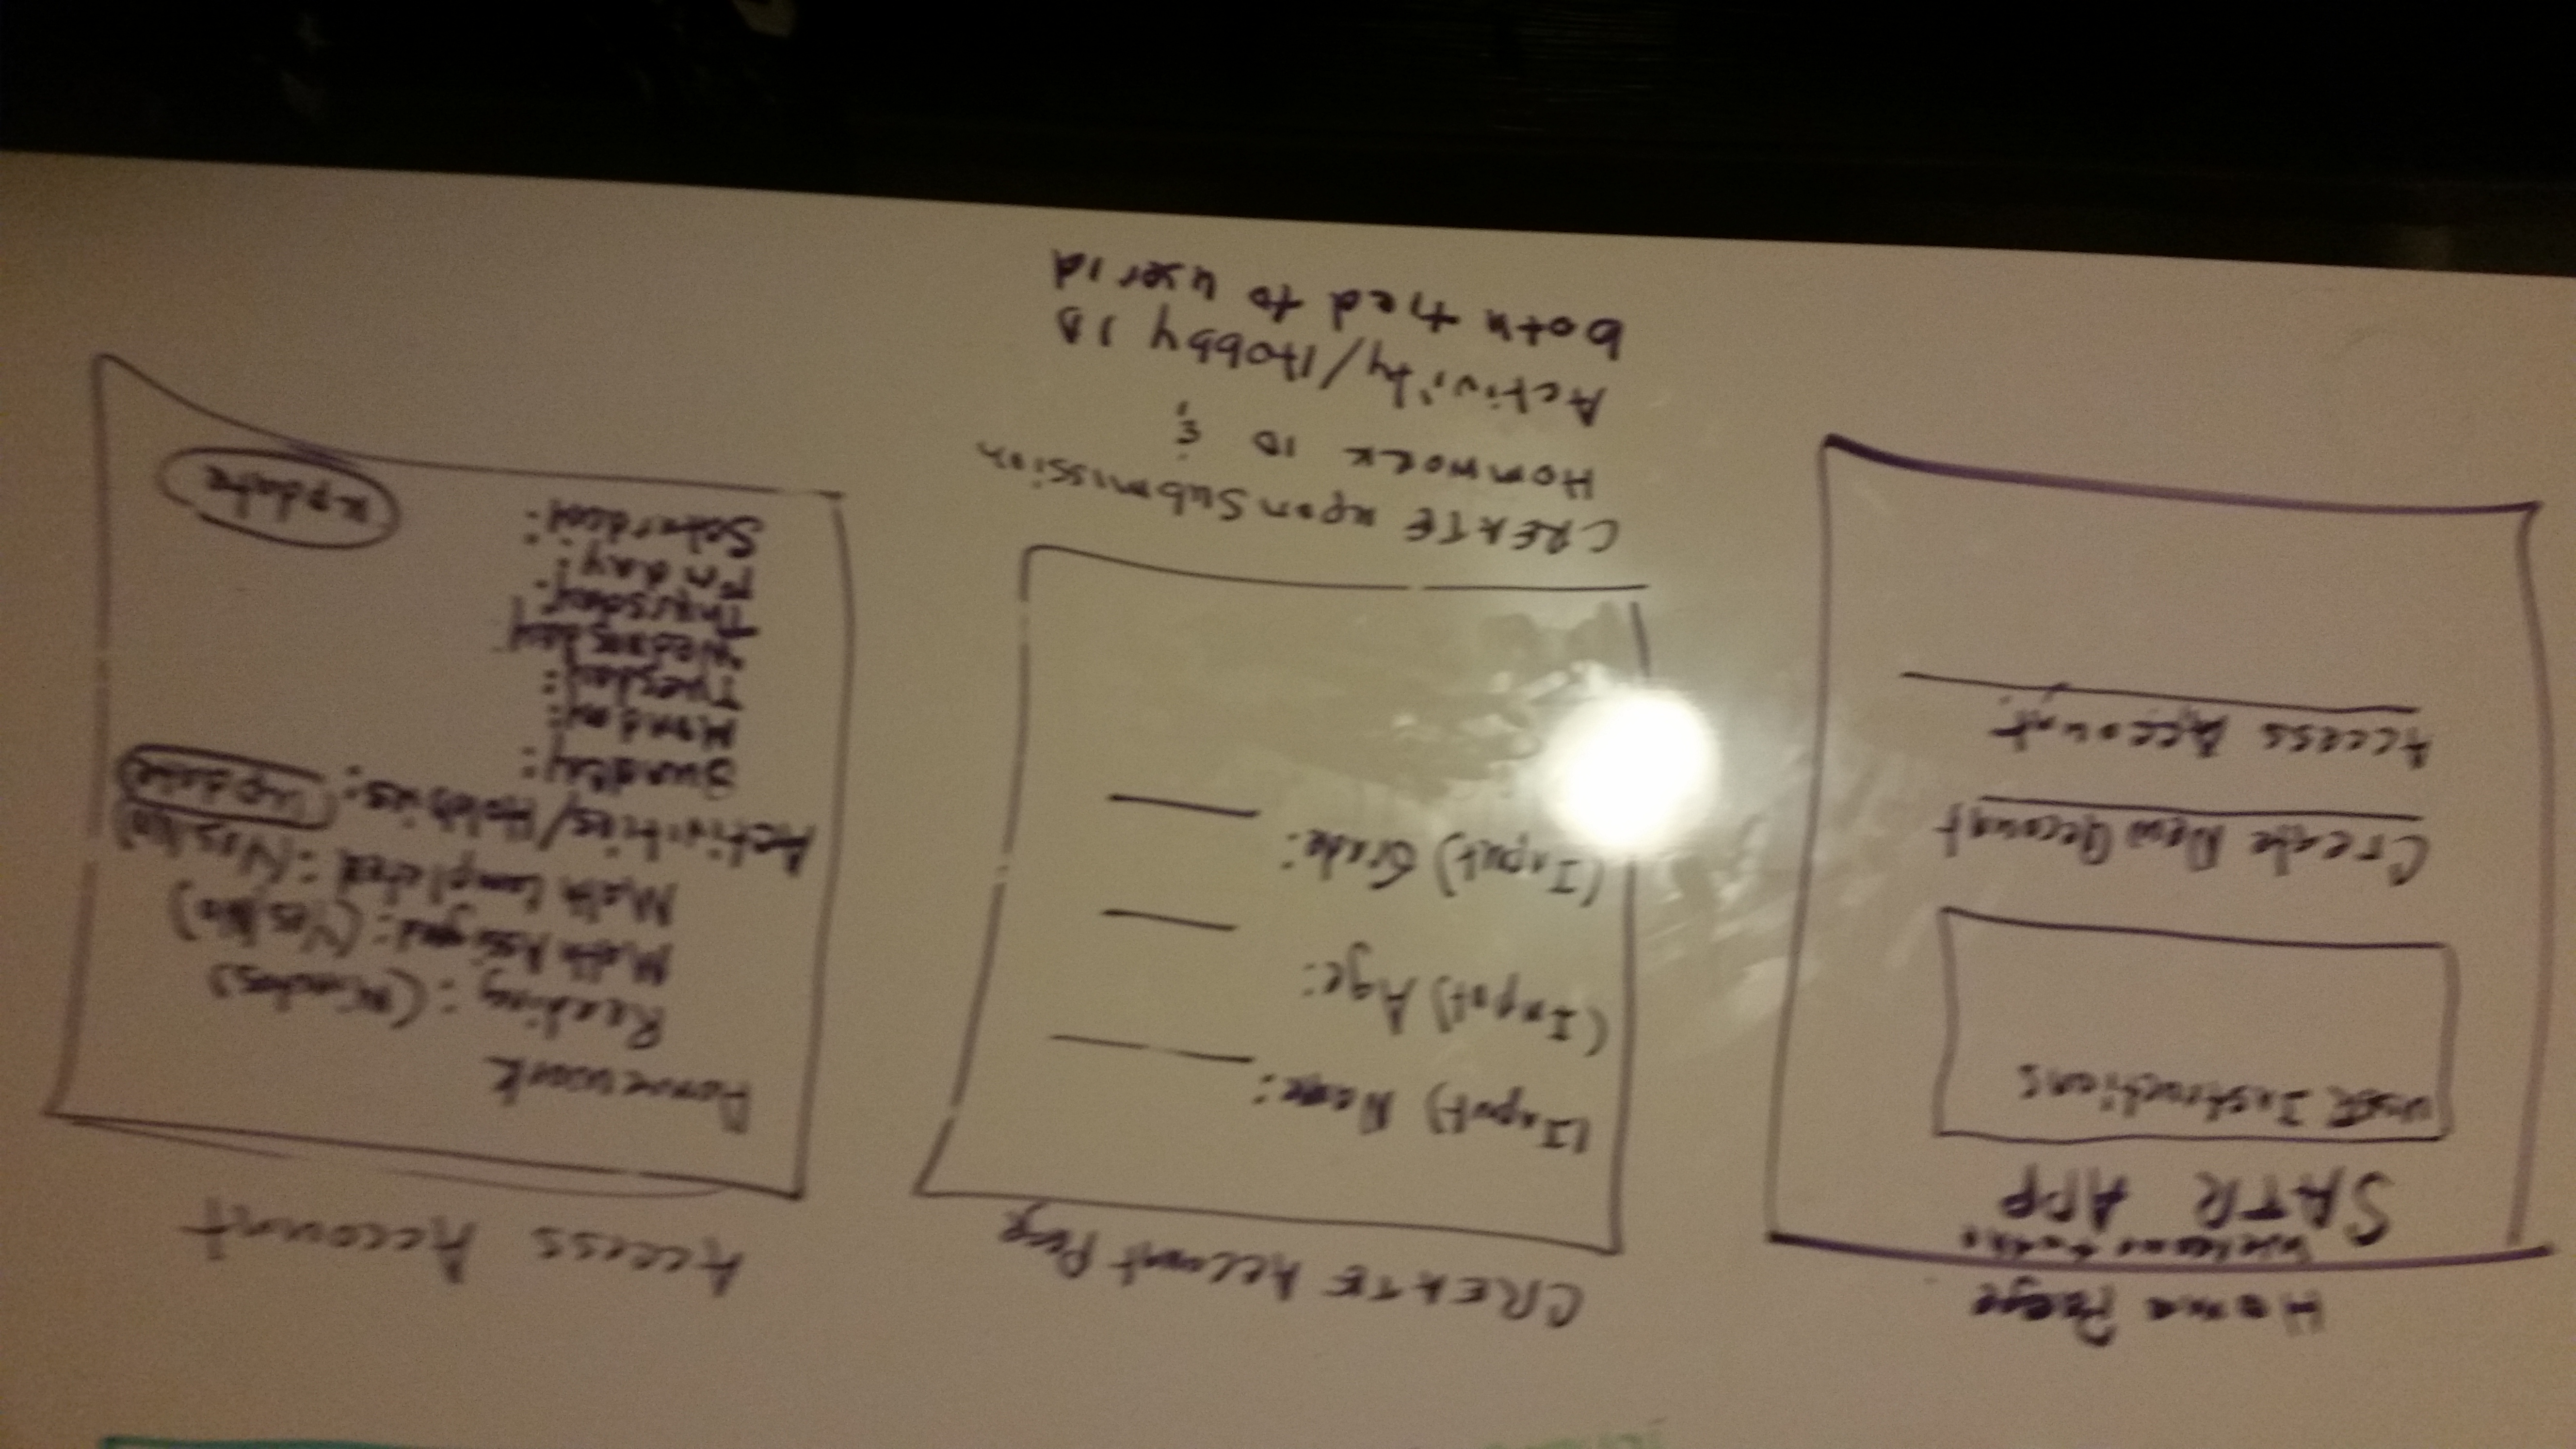 Home Paege
Welcome to the
SATR APP
user Instructions
Create New account
Access Account
CREATE Account Page
(Input) Name:
(Input) Age:
(Input) Grade:
CREATE upon Submission
Homwork ID &
Activity/Hobby ID
both tied to user id
Access Account
Homework
Reading: (Minutes)
Math Assigned: (Yes/No)
Math Completed: (Yes/No)
Activities/Hobbies: update
Sunday:
Monday:
Tuesday:
Wednsday
Thursday:
Friday:
update